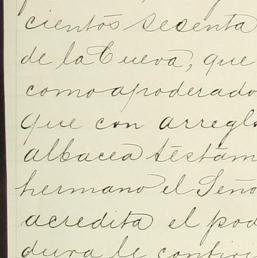 cientos sesenta
de la Cueva, que
como apoderado
que con arregl
albacea testam
hermano el Seño
acredita el pod
dura le confiri